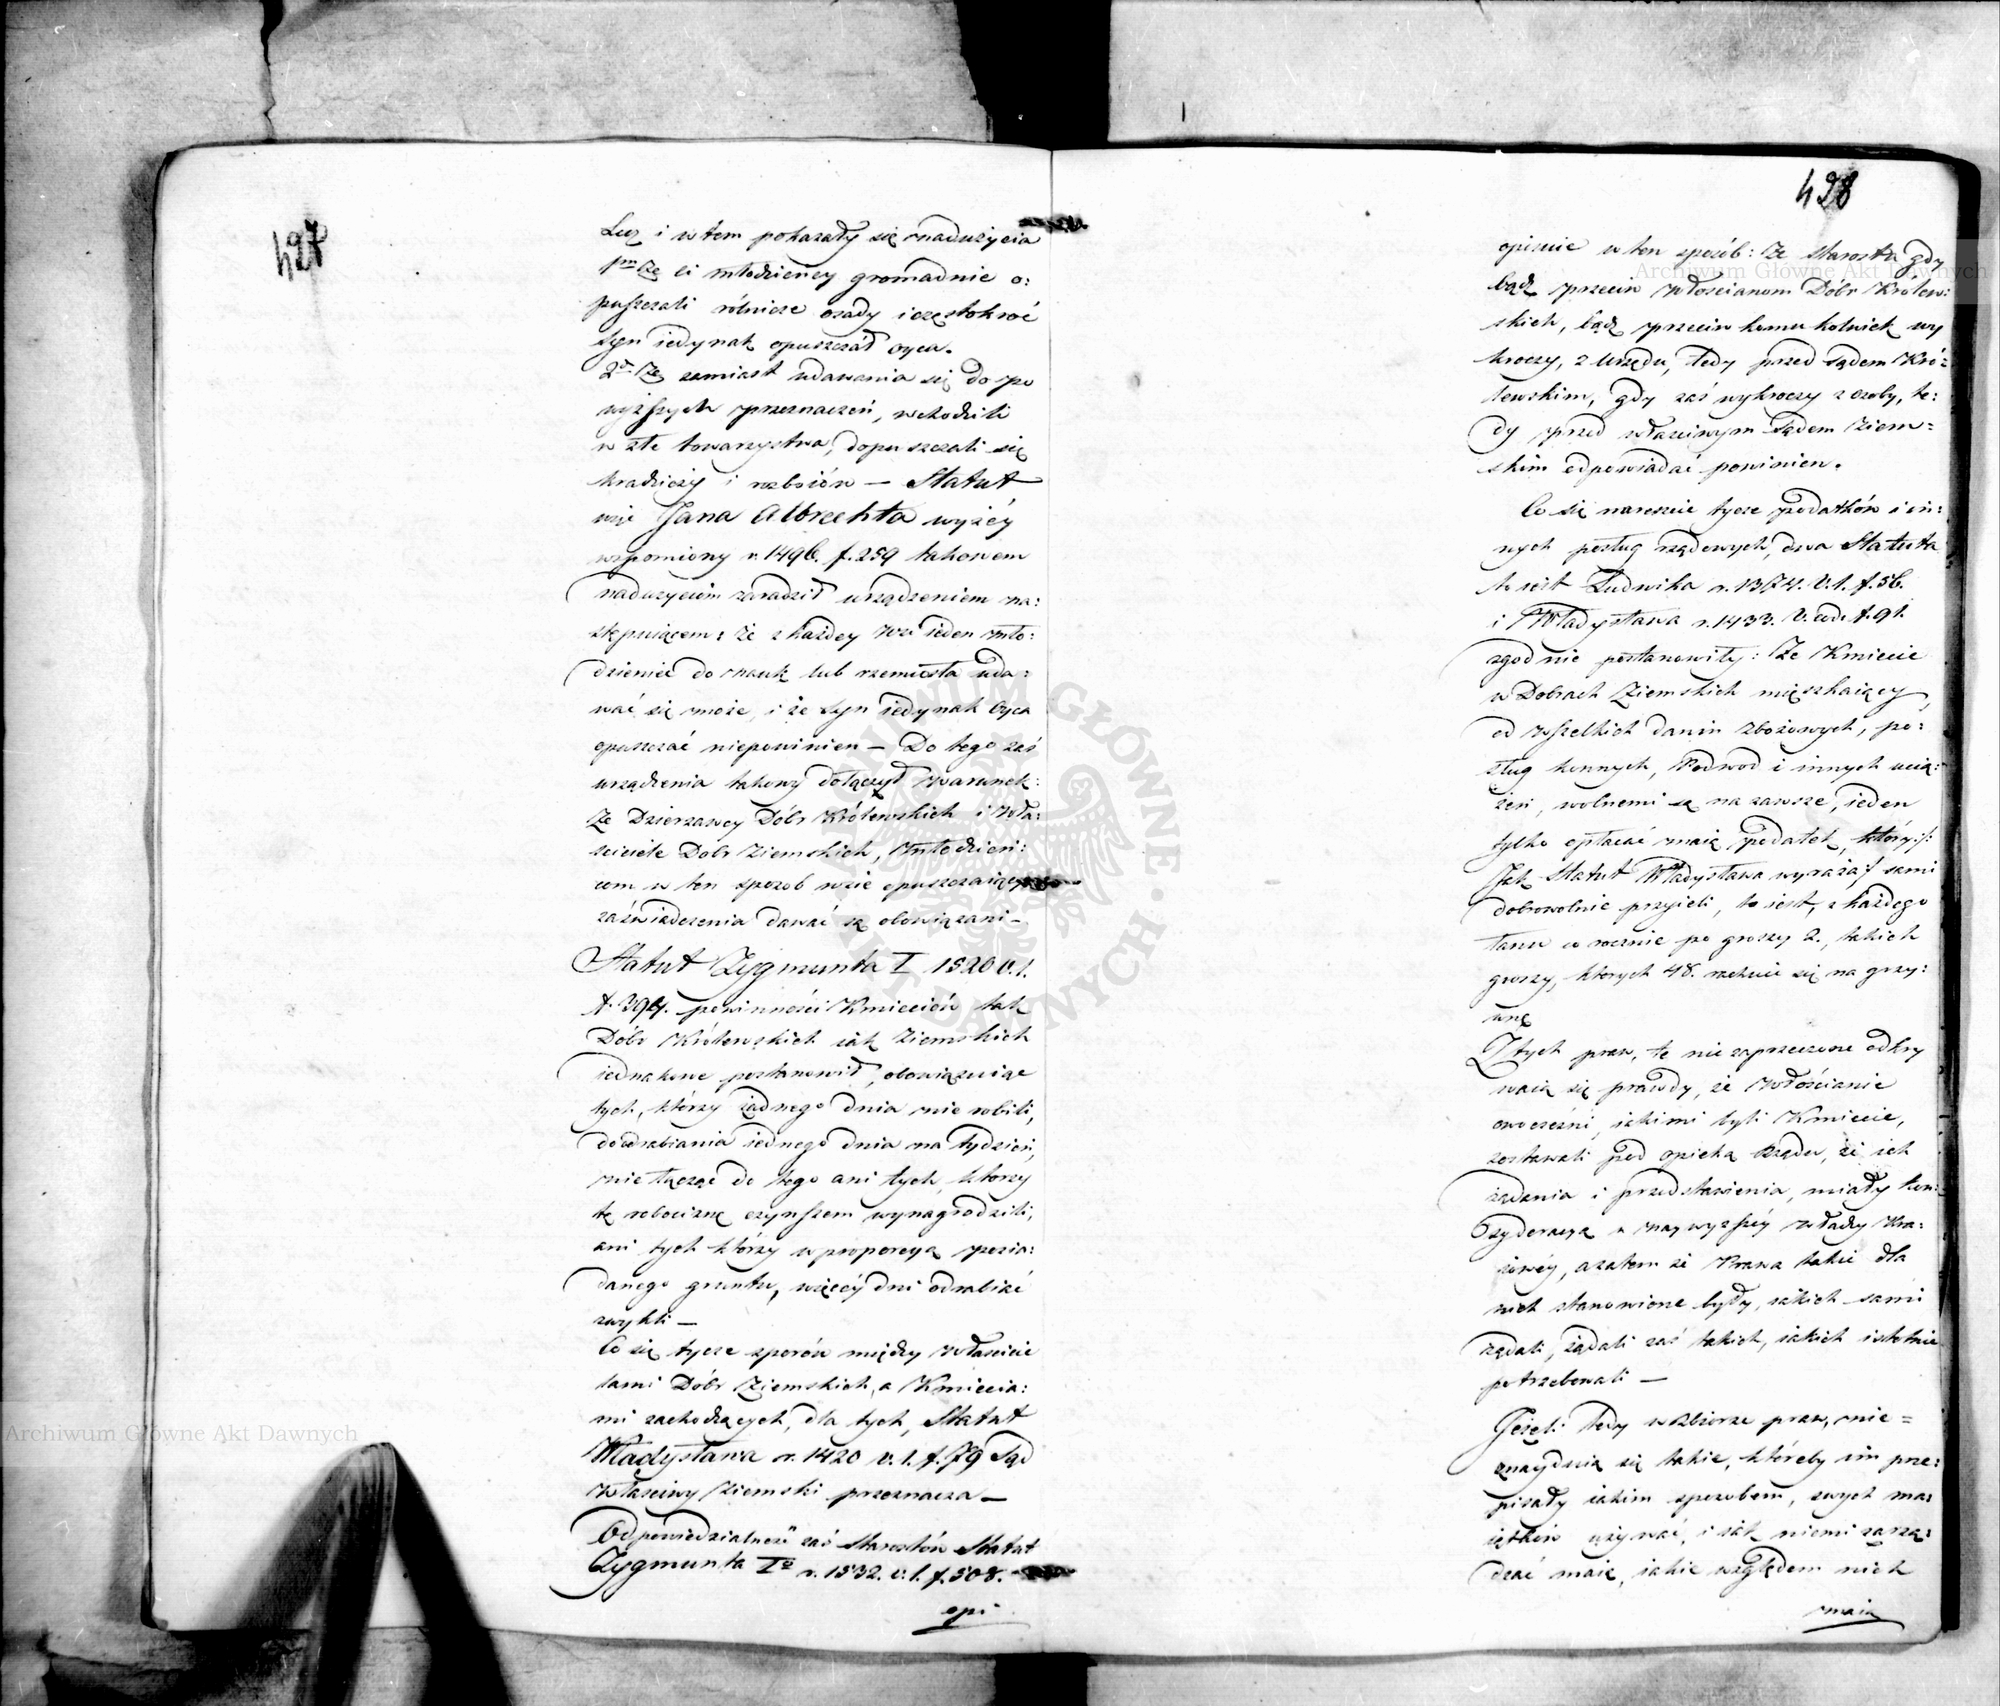 427
Lecz i w tem pokazały się nadużycia
1mo Że ci młodzieńcy gromadnie o:
puszczali rólnicze osady i częstokroć
Syn iedynak opuszczał oyca.
2do Że zamiast udawania się do po
wyższych przeznaczeń, wchodzili
w złe towarzystwa, dopuszczali się
kradzieży i rozboiów — Statut
więc Jana Albrechta wyżéy
wspomiony r. 1496. f. 259 takowem
nadużyciom zaradził urządzeniem na:
stępuiącem: że z każdey wsi ieden mło:
dzieniec do nauk lub rzemiosła uda:
wać się może, i że Syn iedynak Oyca
opuszczać niepowinien — Do tego zaś
urządzenia takowy dołączył warunek:
Że Dzierzawcy Dóbr Królewskich i Wła:
ściciele Dobr Ziemskich, młodzień:
com w ten sposob wsie opuszczaiącym
zaświadczenia dawać są obowiązani —
Statut Zygmunta I 1520 V. 1.
f. 394. powinności Kmieciów tak
Dóbr Królewskich iak Ziemskich
iednakowe postanowił, obowiązuiąc
tych, którzy żadnego dnia nie robili,
do odrabiania iednego dnia na tydzień,
nie łącząc do tego ani tych, ktorzy
tę robociznę czynszem wynagrodzili,
ani tych którzy w proporcyą posia:
danego gruntu, więcéy dni odrabiać
zwykli —
Co się tycze sporów między Właścicie
lami Dóbr Ziemskich, a Kmiecia:
mi zachodzących, dla tych, Statut
Władysława r. 1420 v. 1. f. 79 Sąd
właściwy Ziemski przeznacza —
Odpowiedzialność zaś Starostów Statut
Zygmunta Igo r. 1532. v. 1. f. 508.
opi
428
opisuie w ten sposób: Że Starosta gdy
bądź przeciw Włościanom Dóbr Królew:
skich, bądź przeciw komu kolwiek wy
kroczy, z Urzędu, tedy przed Sądem Kró:
lewskim, gdy zaś wykroczy z osoby, te:
dy przed właściwym Sądem Ziem=
skim odpowiadać powinien.
Co się nareszcie tycze podatków i in:
nych posług rządowych, dwa Statuta
to iest Ludwika r. 1374. V. 1. f. 56.
i Władysława r. 1433. V. eod. f. 91.
zgodnie postanowiły: Że Kmiecie
w Dobrach Ziemskich mięszkaiący,
od wszelkich danin zbożowych, po:
sług konnych, Podwod i innych ucią:
żeń, wolnemi są na zawsze, ieden
tylko opłacać maią podatek, który /:
Jak Statut Władysława wyraża / sami
dobrowolnie przyieli, to iest, z każdego
łanu co rocznie po groszy 2., takich
groszy, ktorych 48. rachuie się na grzy:
wnę
Z tych praw, te nie zaprzeczone odkry
waią się prawdy, że Włościanie
owocześni, iakimi byli Kmiecie,
zostawali pod opieką Rządu, że ich
żądania i przedstawienia, miały kon:
syderacyą u naywyższéy władzy Kra:
iowéy, a zatem że Prawa takie dla
nich stanowione były, iakich sami
żądali, żądali zaś takich, iakich istotnie
potrzebowali —
Jeżeli tedy w zbiorze praw, nie =
znayduią się takie, któreby im prze:
pisały iakim sposobem, swych ma:
iątków używać, i iak niemi zarzą:
dzać maią, iakie względem nich
maią
Archiwum Główne Akt Dawnych
Archiwum Główne Akt Dawnych
ARCHIWUM GŁÓWNE AKT DAWNYCH